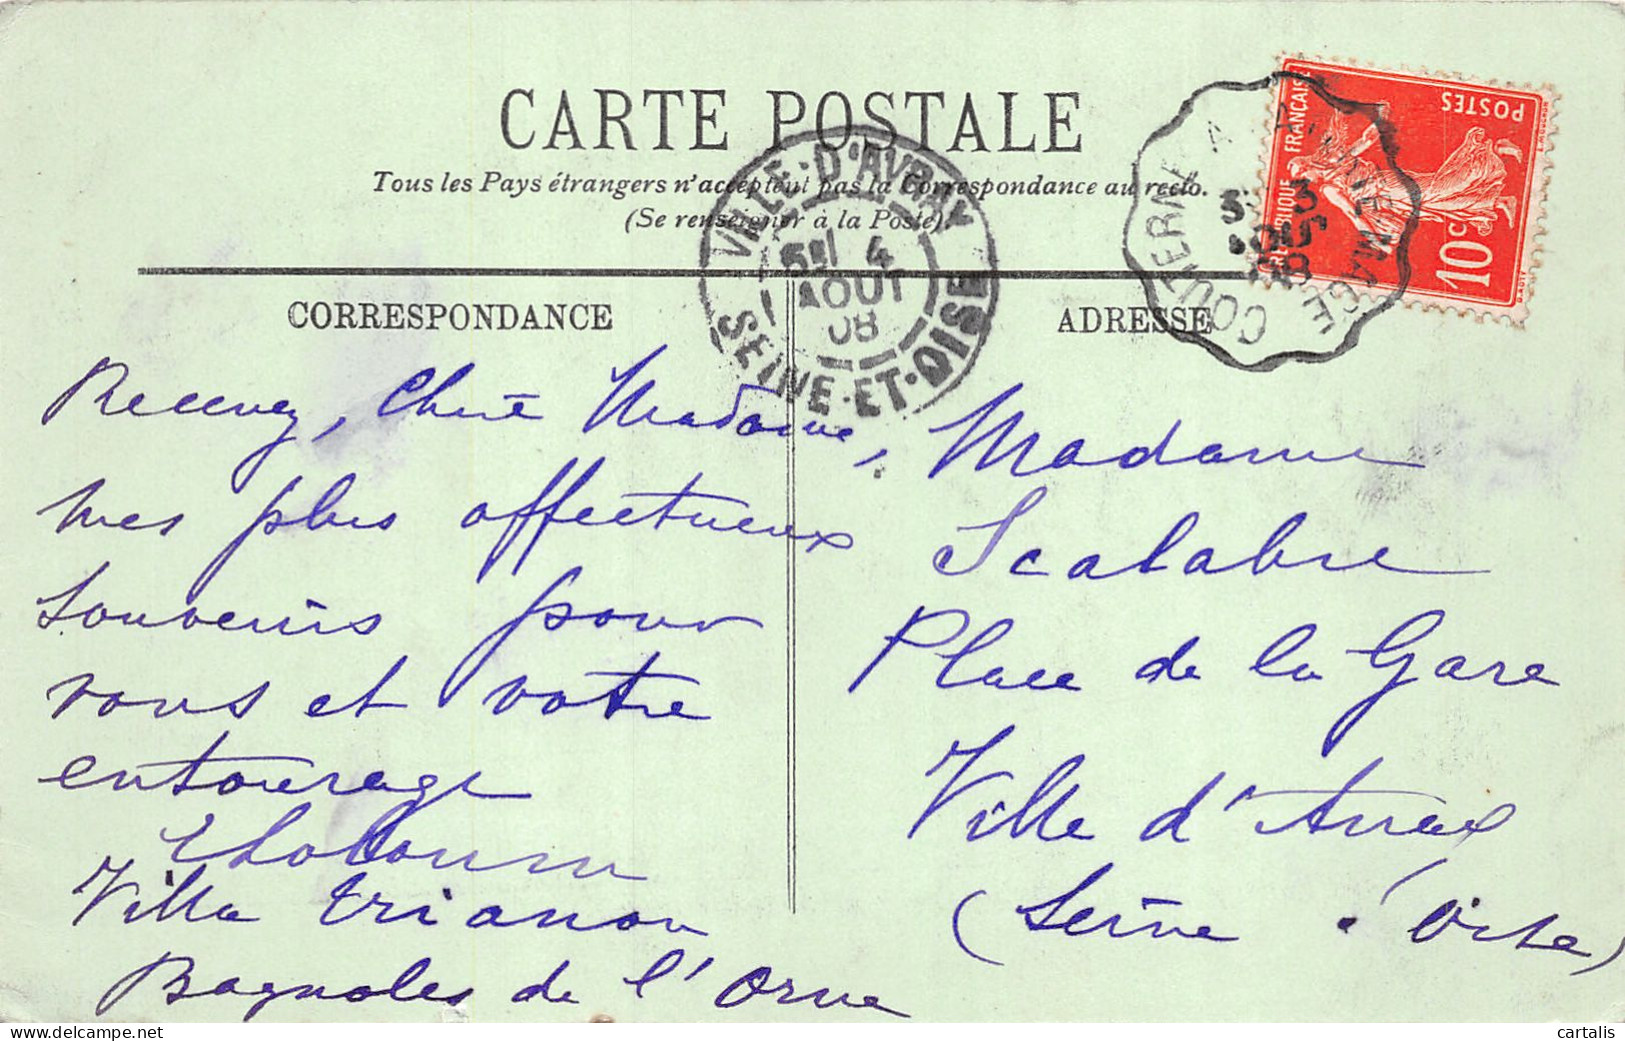 CARTE POSTALE
Tous les Pays étrangers n'acceptent pas la Correspondance au recto.
(Se renseigner à la Poste).
VILLE-D'AVRAY
4
AOUT
08
SEINE-ET-OISE
COUTERNE A
3
08
REPUBLIQUE FRANÇAISE
POSTES
10c
CORRESPONDANCE
ADRESSE
Recevez, Chère Madame,
mes plus affectueux
souvenirs pour
vous et votre
entourage
Villa Trianon
Bagnoles de l'Orne
Madame
Scalabre
Place de la Gare
Ville d'Avray
(Seine & Oise)
cartalis
delcampe.net